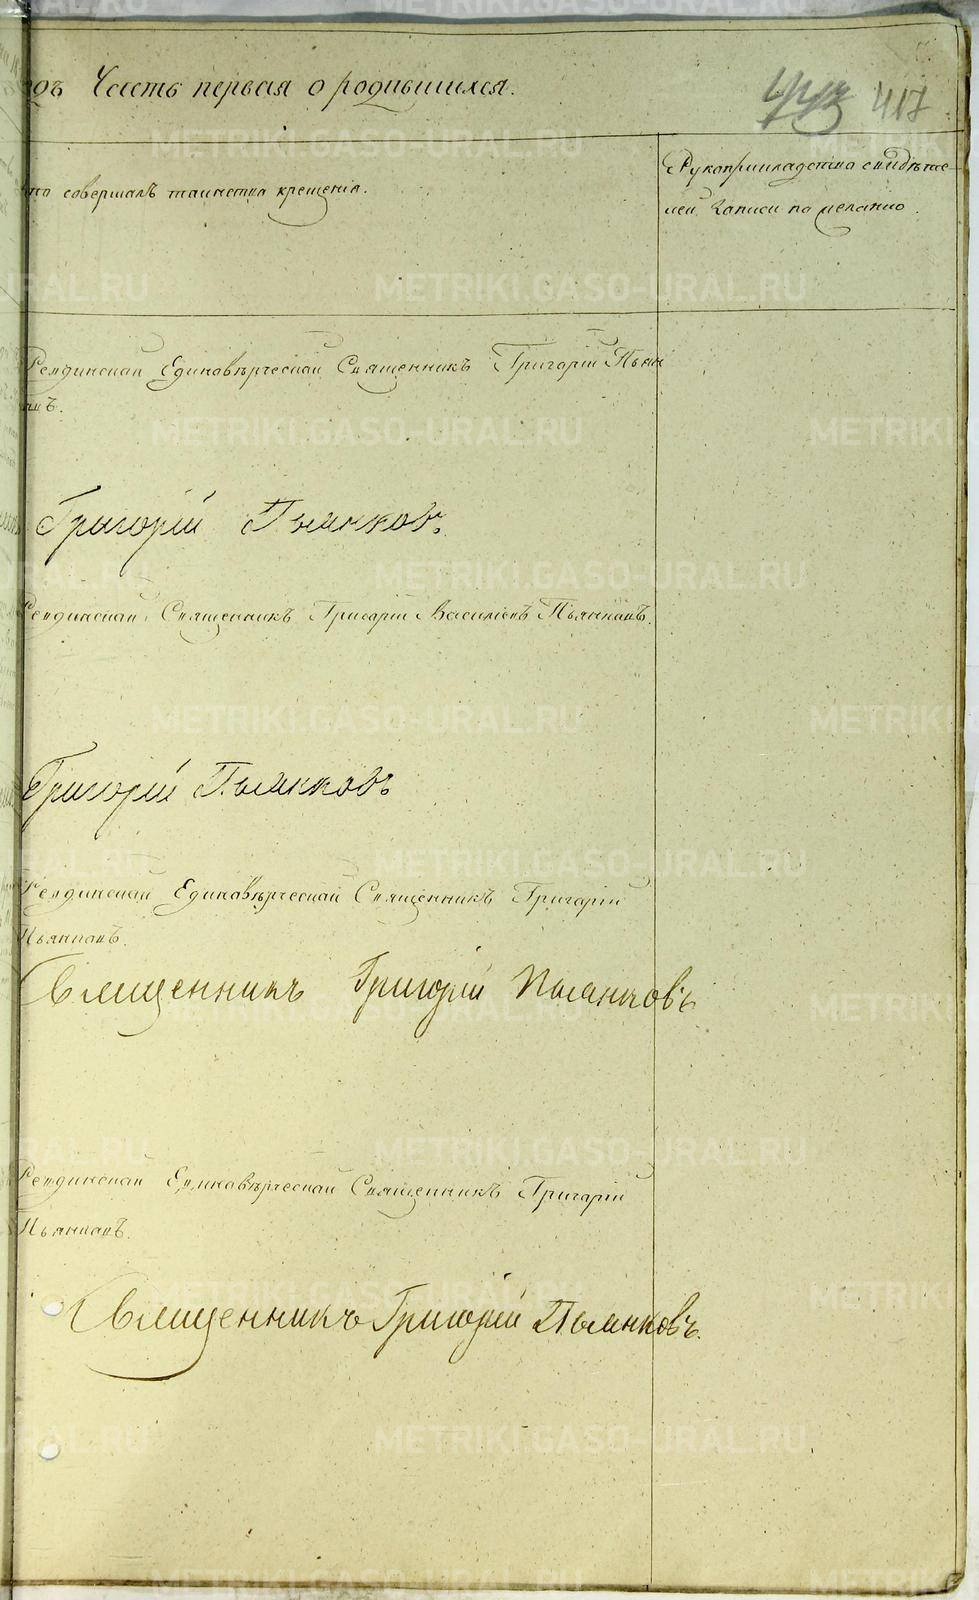 одъ Часть первая о родившихся.
443 417
то совершалъ таинство крещенія.
Рукоприкладство свидѣте-
лей записи по желанію.
Ревдинскай Единавѣрческай Священникъ Григарій Пьян
авъ.
Григорій Пьянков.
Ревдинскай Священникъ Григарій Василіевъ Пьянкавъ.
Григорій Пьянковъ
Ревдинскай Единавѣрческай Священникъ Григарій
Пьянкавъ.
Священникъ Григорій Пьянковъ
Ревдинскай Единавѣрческай Священникъ Григарій
Пьянкавъ.
Священникъ Григорій Пьянковъ.
METRIKI.GASO-URAL.RU